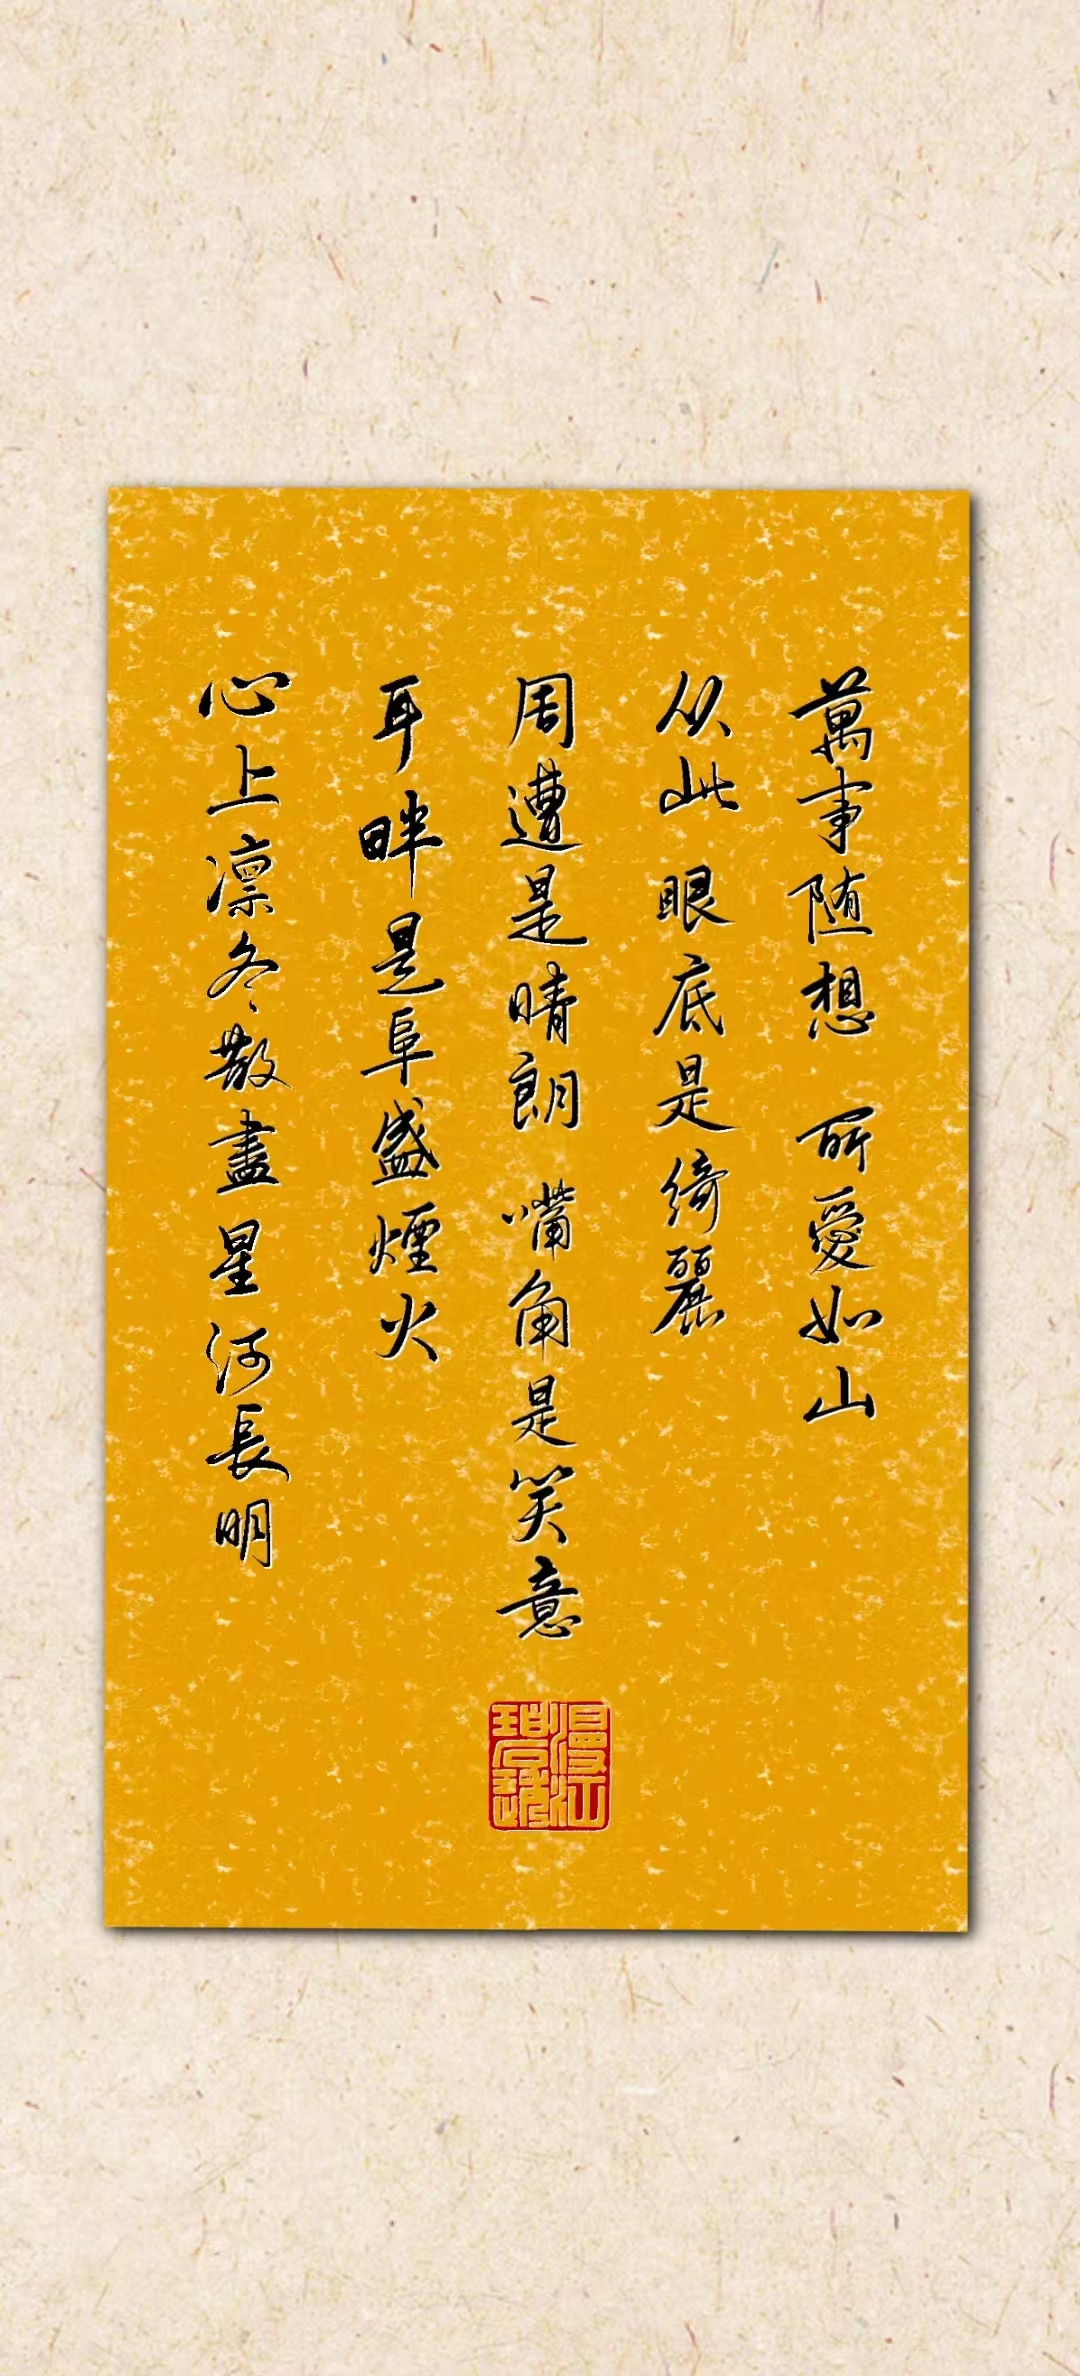 萬事随想 所愛如山
从此眼底是綺麗
周遭是晴朗 嘴角是笑意
耳畔是阜盛煙火
心上凛冬散盡星河長明
漫江
碧透